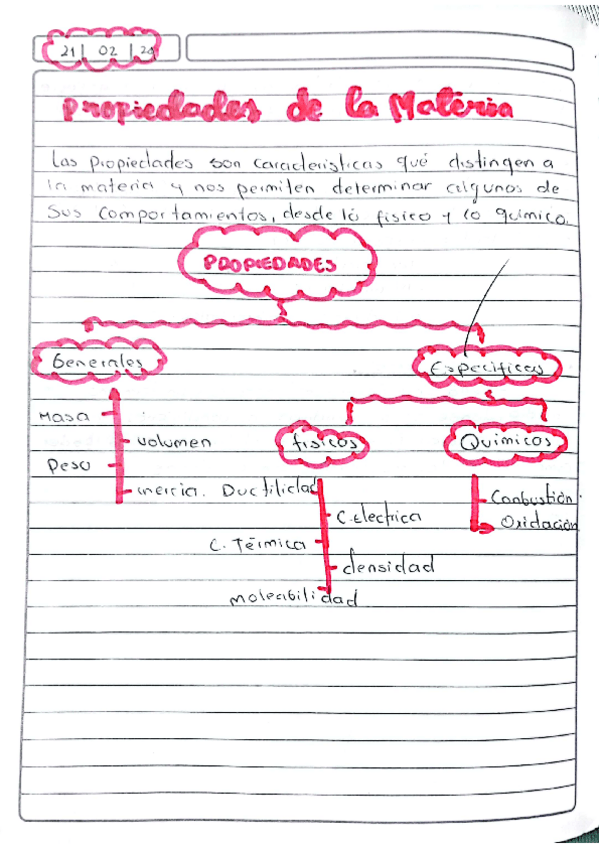 21 | 02 | 24
Propiedades de la Materia
Las propiedades son caracteristicas qué distingen a
la materia y nos permiten determinar algunos de
Sus comportamientos, desde lo fisico y lo químico.
PROPIEDADES
Generales
Especificas
Masa
volumen
Peso
inercia.
fisicos
Químicos
Ductilidad
C.Electrica
C. Térmica
densidad
moleabilidad
Conbustión
Oxidación